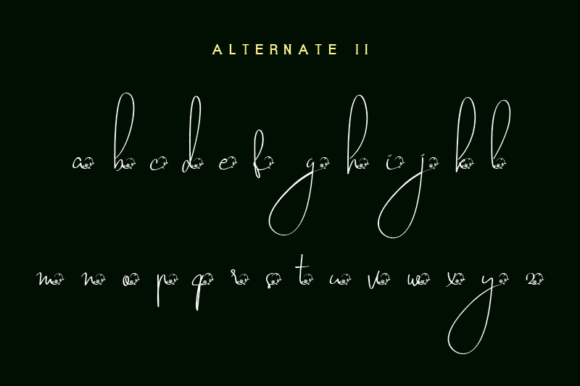 ALTERNATE II
a b c d e f g h i j k l
m n o p q r s t u v w x y z